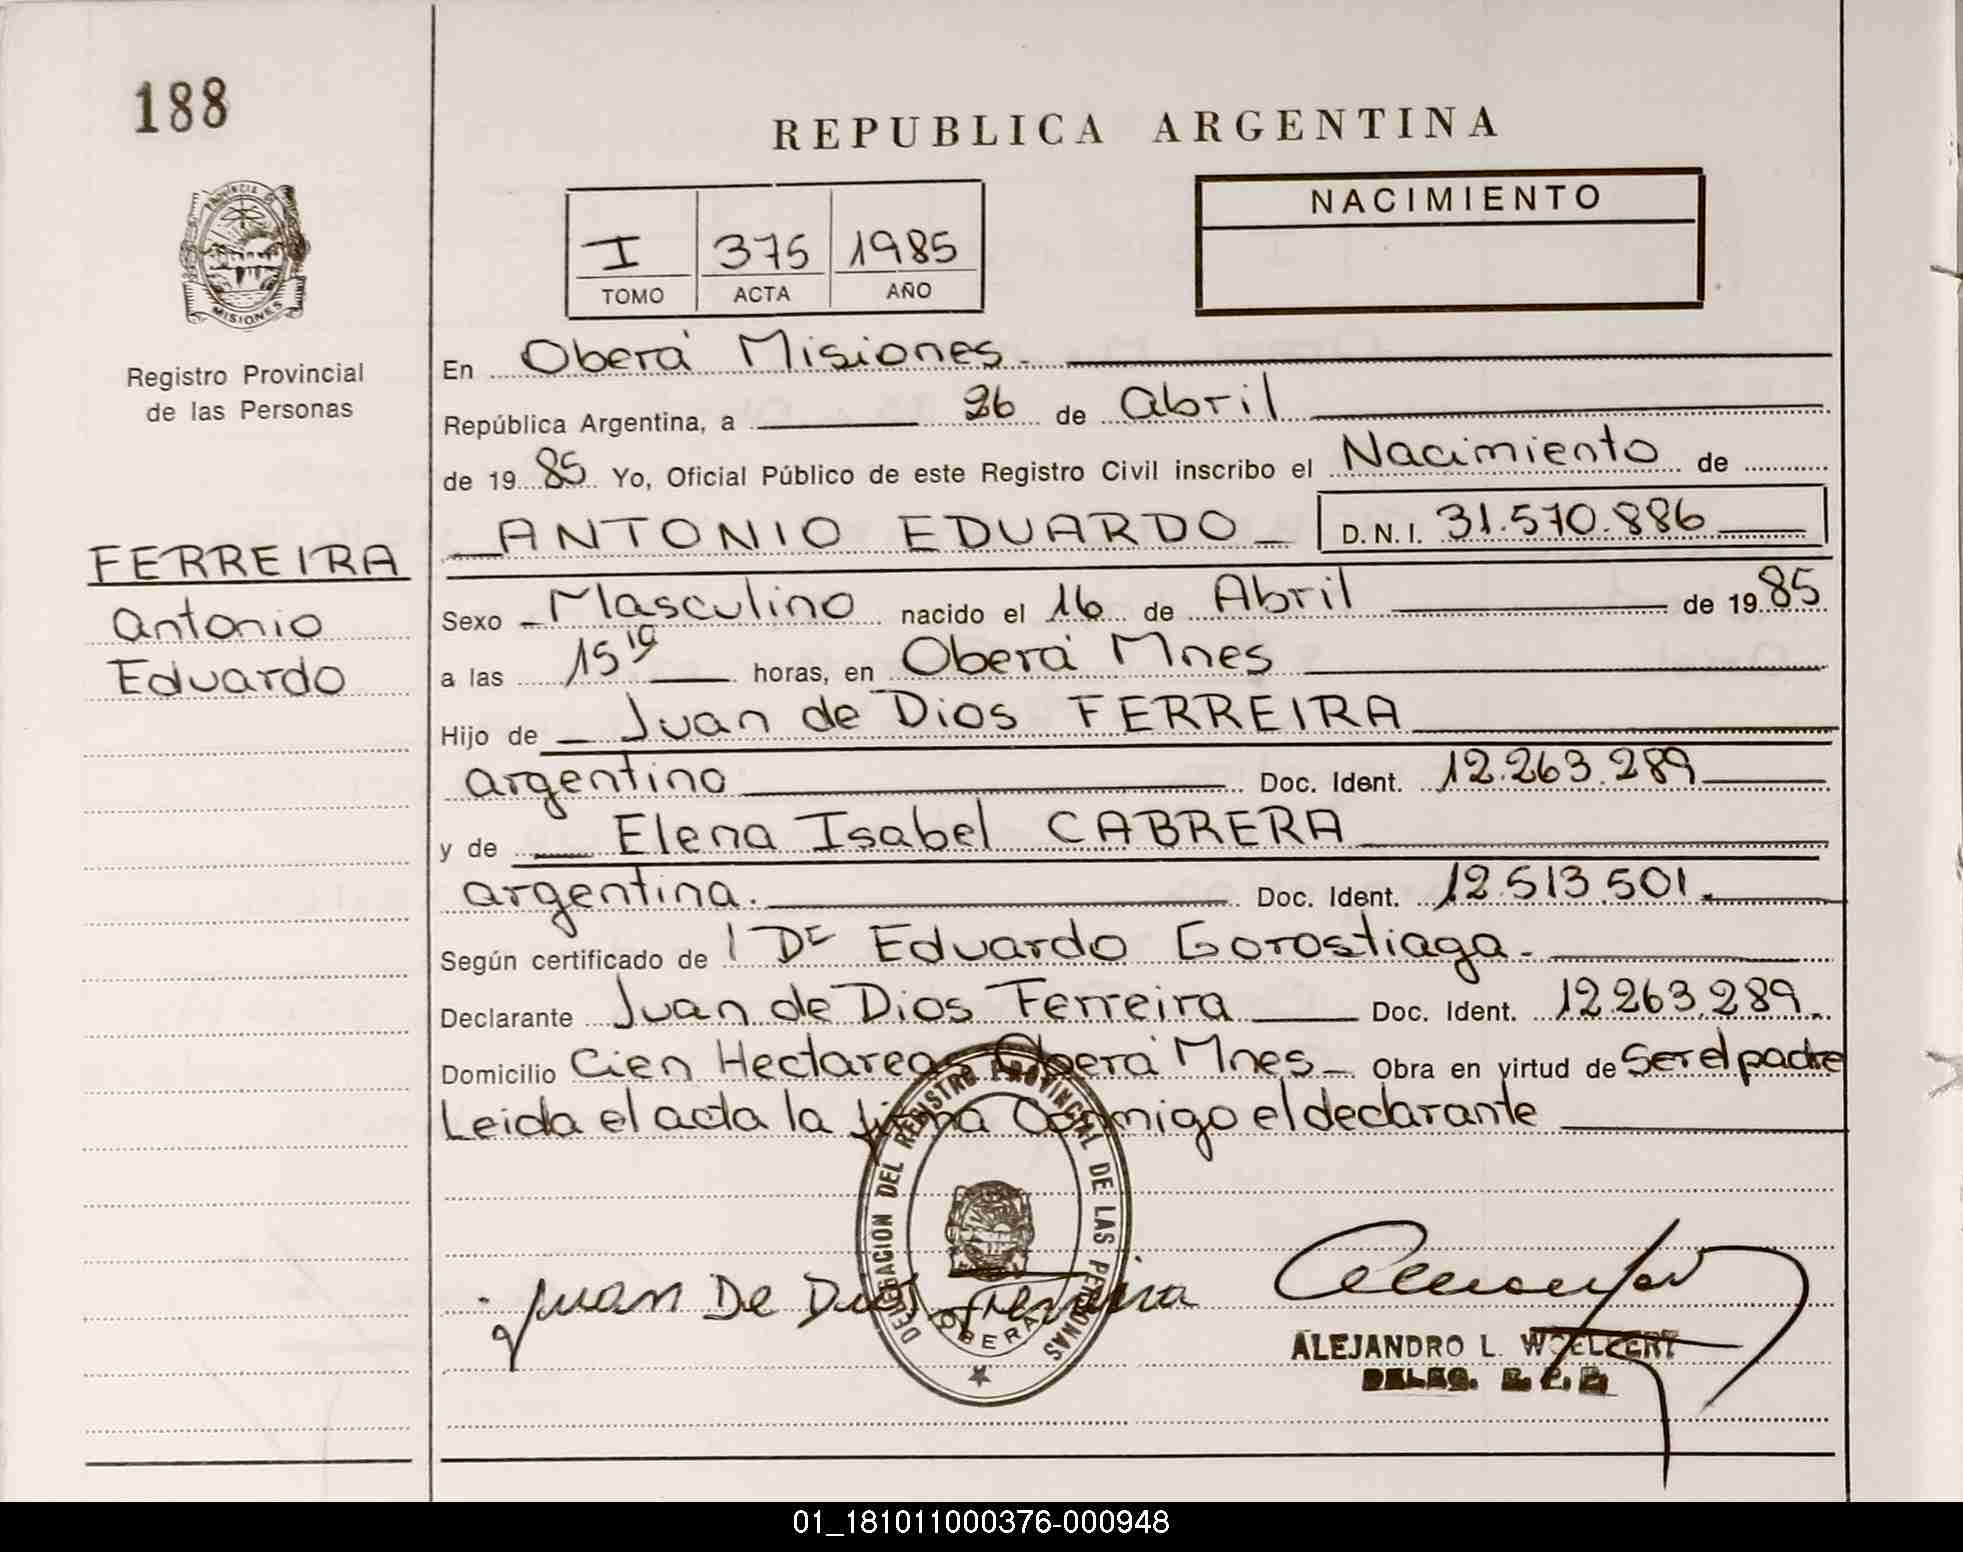 188
REPUBLICA ARGENTINA
NACIMIENTO
I 375 1985
TOMO ACTA AÑO
PROVINCIA DE
MISIONES
Registro Provincial
de las Personas
FERREIRA
Antonio
Eduardo
En Oberá Misiones.
República Argentina, a 26 de Abril
de 1985 Yo, Oficial Público de este Registro Civil inscribo el Nacimiento de
ANTONIO EDUARDO D.N.I. 31.570.886
Sexo Masculino nacido el 16 de Abril de 1985
a las 15 10 horas, en Oberá Mnes
Hijo de Juan de Dios FERREIRA
argentino Doc. Ident. 12.263.289
y de Elena Isabel CABRERA
argentina. Doc. Ident. 12.513.501.
Según certificado de Dr Eduardo Gorostiaga.
Declarante Juan de Dios Ferreira Doc. Ident. 12.263.289.
Domicilio Cien Hectareas Oberá Mnes Obra en virtud de Ser el padre
Leida el acta la firma Conmigo el declarante
DELEGACION DEL REGISTRO PROVINCIAL DE LAS PERSONAS
OBERA
Juan De Dios Ferreira
ALEJANDRO L. WOELKERT
DELEG. R. P. P.
01_181011000376-000948